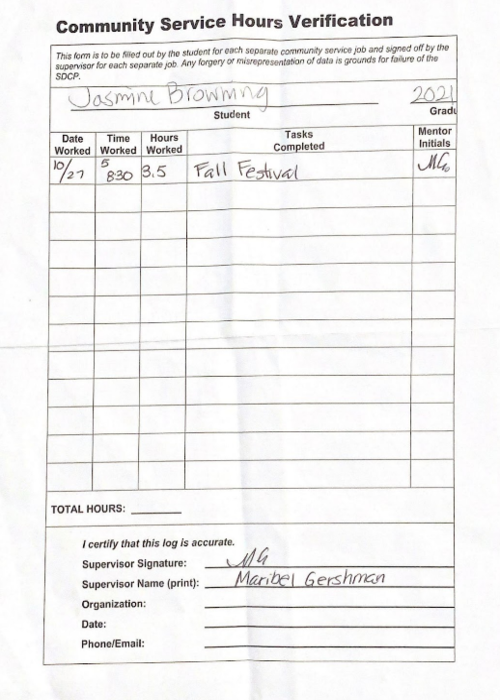 Community Service Hours Verification
This form is to be filled out by the student for each separate community service job and signed off by the
supervisor for each separate job. Any forgery or misrepresentation of data is grounds for failure of the
SDCP.
Jasmine Browning 2021
Student Gradu
Date Worked Time Worked Hours Worked Tasks Completed Mentor Initials
10/27 5 8:30 3.5 Fall Festival MG
TOTAL HOURS:
I certify that this log is accurate.
Supervisor Signature: MG
Supervisor Name (print): Maribel Gershman
Organization:
Date:
Phone/Email: